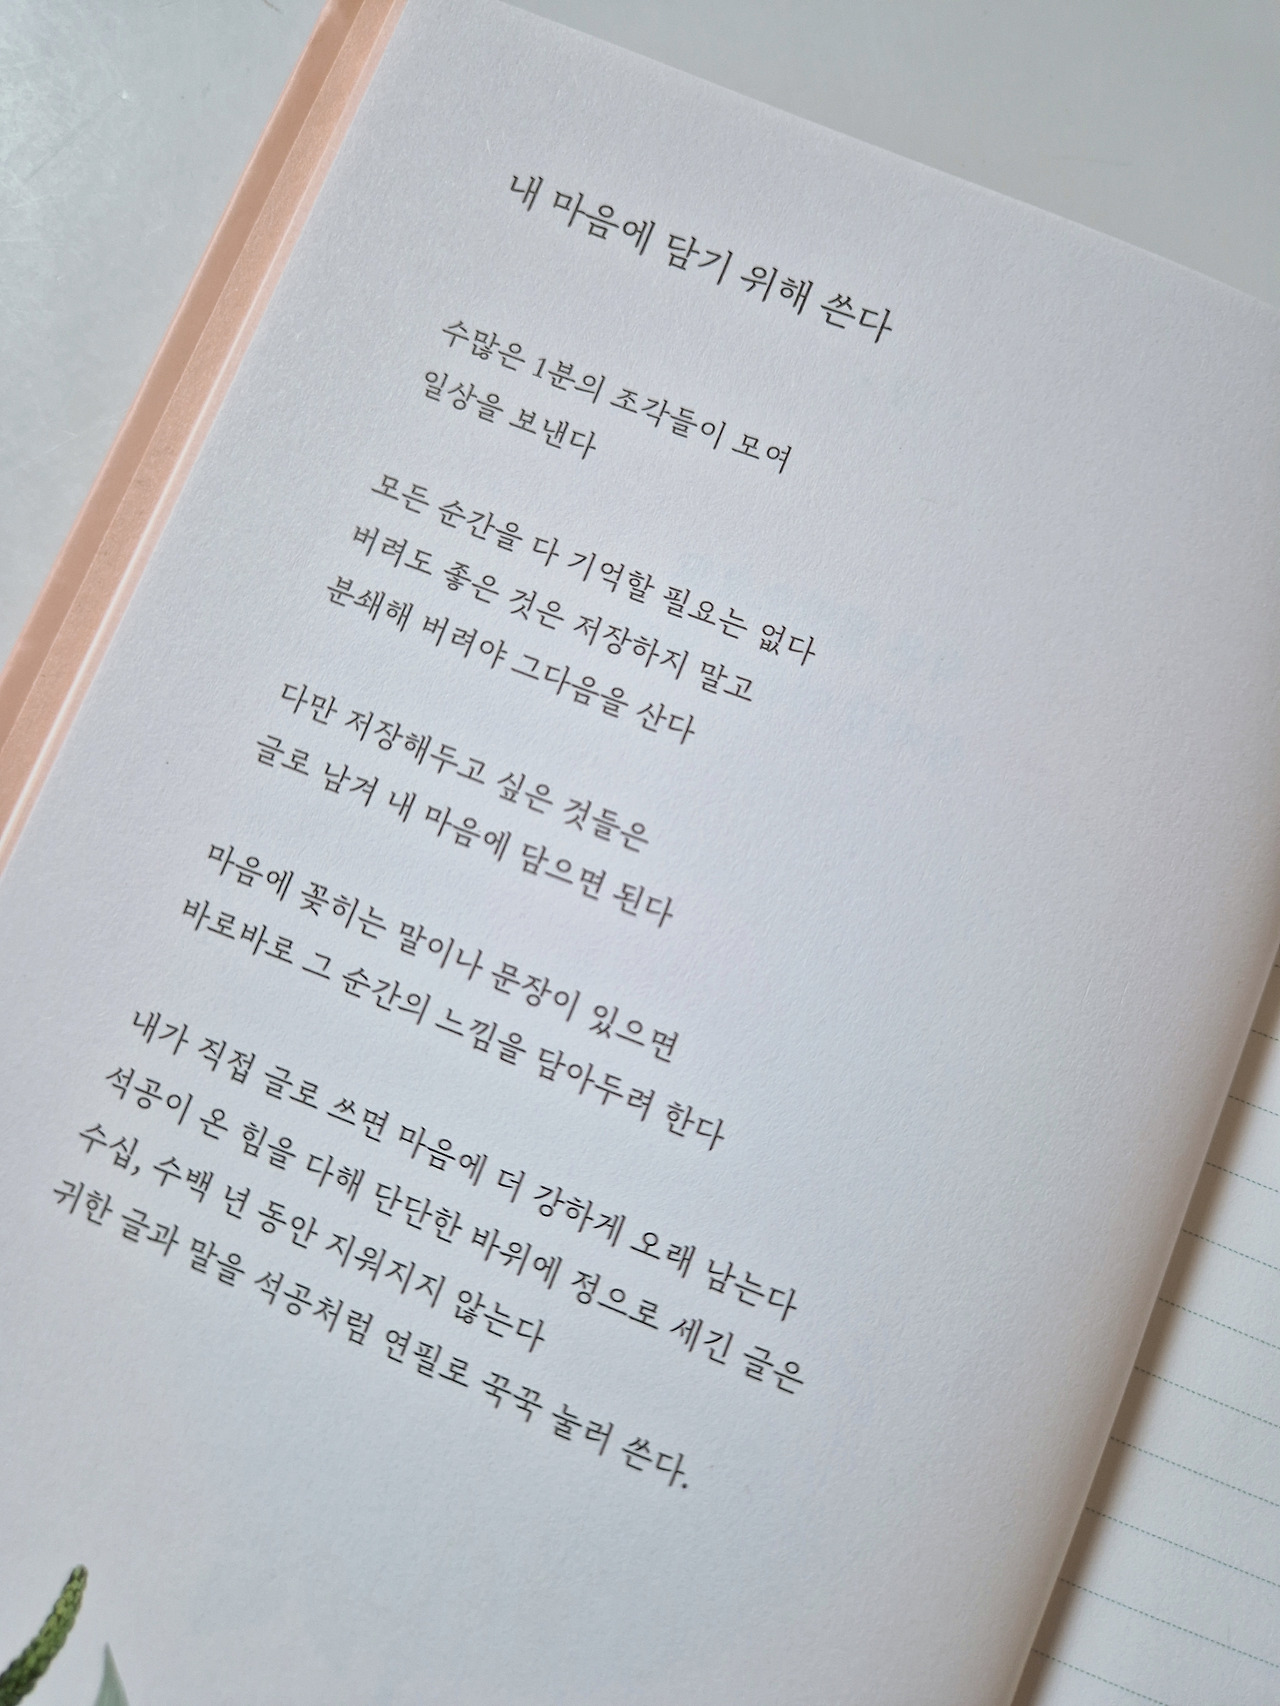 내 마음에 담기 위해 쓴다
수많은 1분의 조각들이 모여
일상을 보낸다
모든 순간을 다 기억할 필요는 없다
버려도 좋은 것은 저장하지 말고
분쇄해 버려야 그다음을 산다
다만 저장해두고 싶은 것들은
글로 남겨 내 마음에 담으면 된다
마음에 꽂히는 말이나 문장이 있으면
바로바로 그 순간의 느낌을 담아두려 한다
내가 직접 글로 쓰면 마음에 더 강하게 오래 남는다
석공이 온 힘을 다해 단단한 바위에 정으로 세긴 글은
수십, 수백 년 동안 지워지지 않는다
귀한 글과 말을 석공처럼 연필로 꾹꾹 눌러 쓴다.